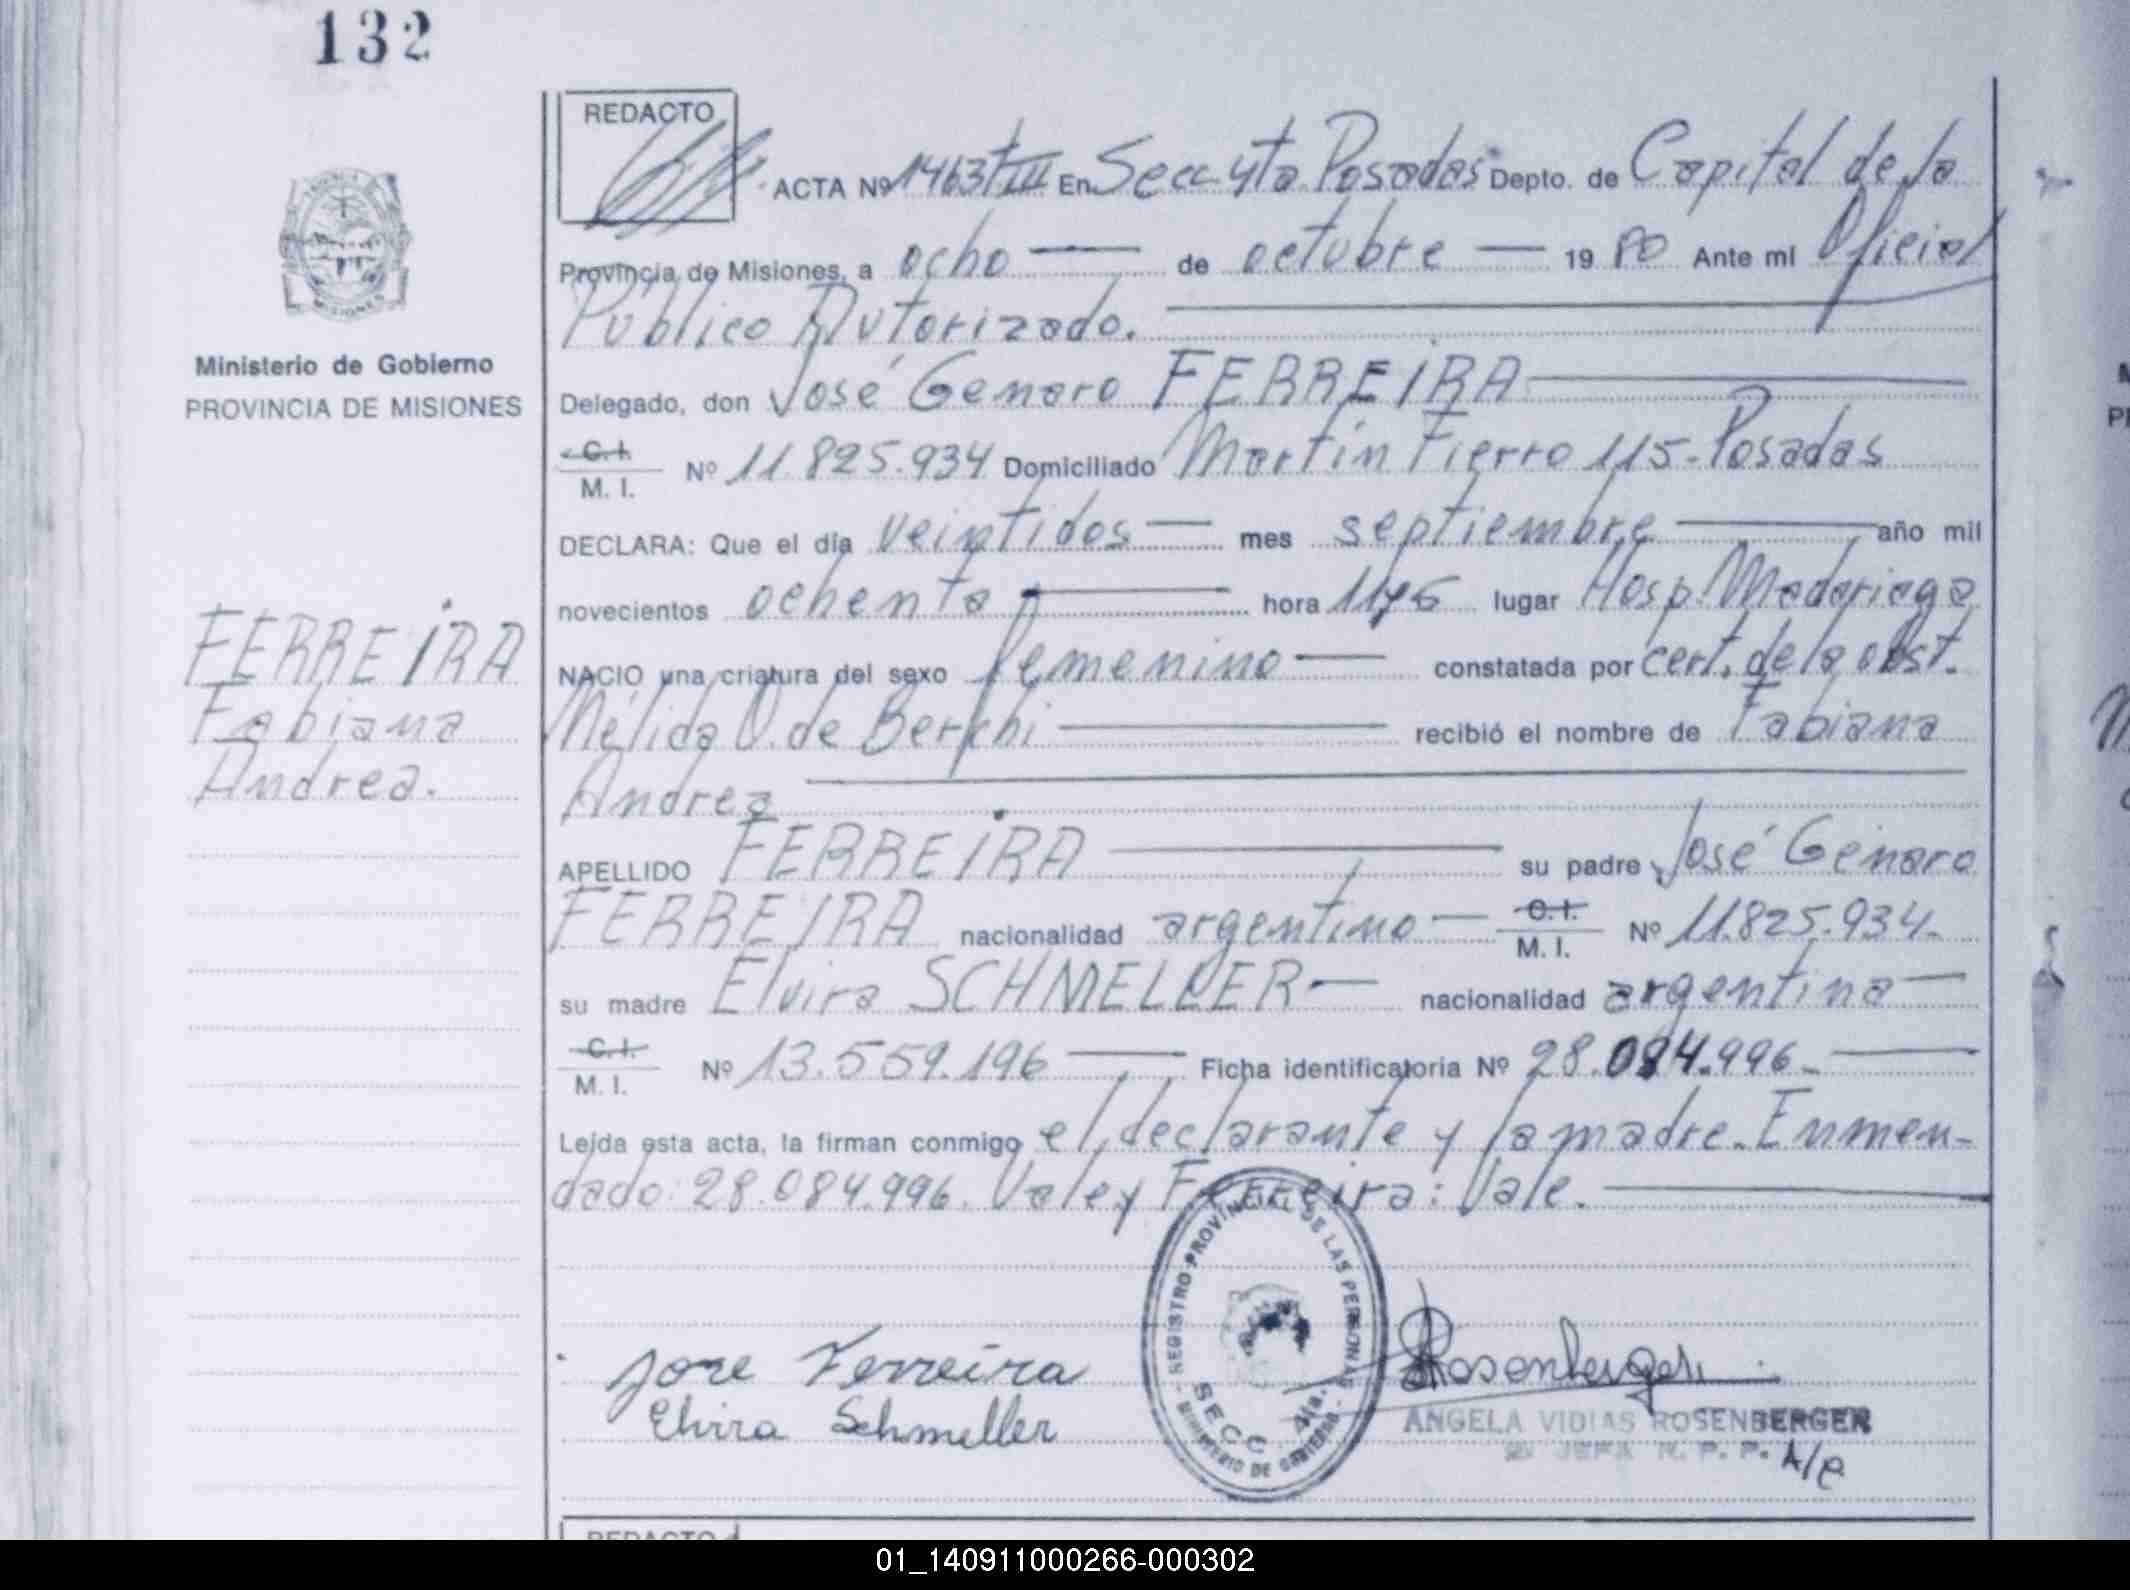 132
REDACTO
ACTA Nº 1463 t III En Secc 4ta Posadas Depto. de Capital de la
Provincia de Misiones, a ocho de octubre 19 80 Ante mí Oficial
Público Autorizado.
Ministerio de Gobierno
PROVINCIA DE MISIONES
Delegado, don José Genaro FERREIRA
C.I.
M. I.
Nº 11.825.934 Domiciliado Martín Fierro 115-Posadas
DECLARA: Que el día veintidos mes septiembre año mil
novecientos ochenta hora lugar Hosp. Madariaga
NACIO una criatura del sexo femenino constatada por cert. de la obst.
Nélida O. de Berchi recibió el nombre de Fabiana
Andrea
FERREIRA
Fabiana
Andrea.
APELLIDO FERREIRA su padre José Genaro
FERREIRA nacionalidad argentino C.I. M. I. Nº 11.825.934.
su madre Elvira SCHMELLER nacionalidad argentina
C.I.
M. I.
Nº 13.559.196 Ficha identificatoria Nº 28.084.996.
Leída esta acta, la firman conmigo el declarante y la madre. Enmen-
dado: 28.084.996. Vale y Ferreira: Vale.
REGISTRO PROVINCIAL DE LAS PERSONAS
SECC 4ta.
MINISTERIO DE GOBIERNO
Jose Ferreira
Elvira Schmeller
Rosenberger
ANGELA VIDIAS ROSENBERGER
JEFA R. P. P. A/C
REDACTO
01_140911000266-000302